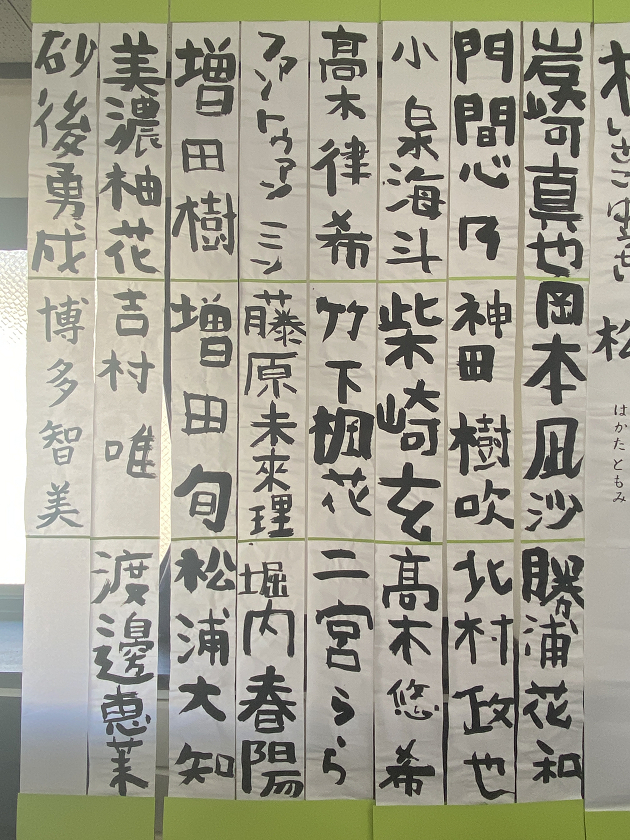 はかたともみ
岩崎真也
岡本凪沙
勝浦花和
門間心乃
神田樹吹
北村政也
小泉海斗
柴崎玄
高木悠希
高木律希
竹下楓花
二宮らら
ファントゥアンミン
藤原未來理
堀内春陽
増田樹
増田旬
松浦大知
美濃柚花
吉村唯
渡邊恵茉
砂後勇成
博多智美